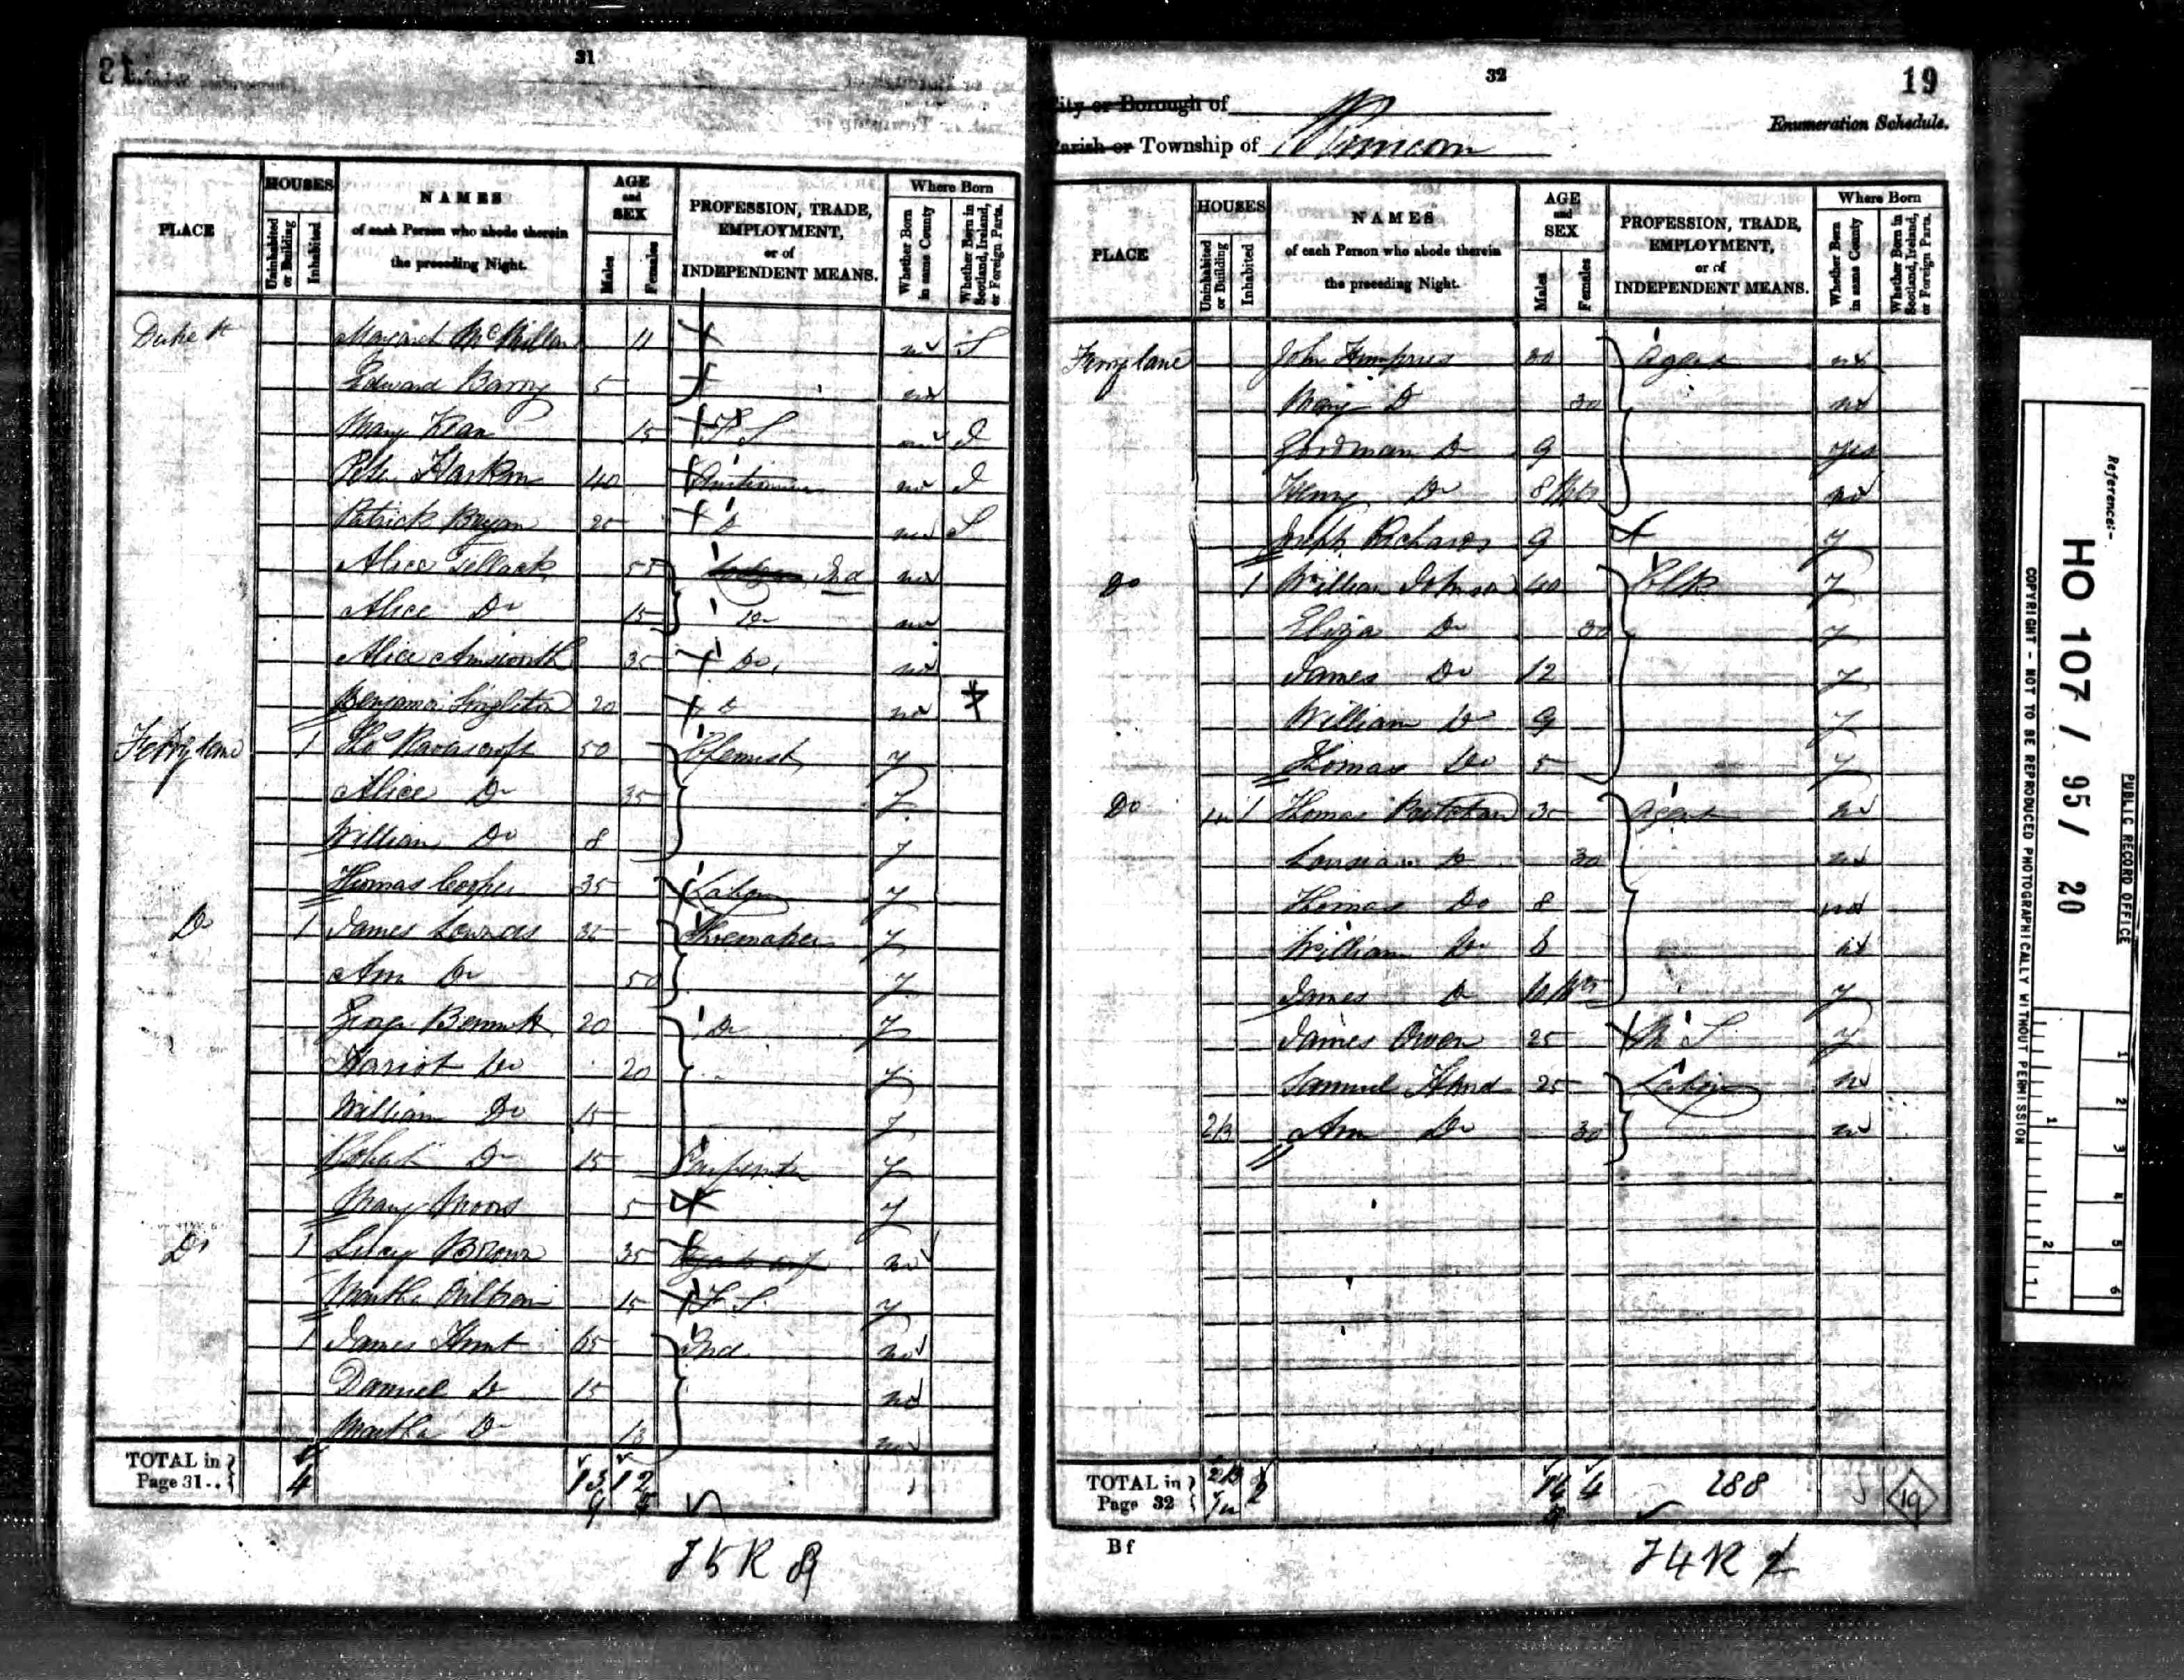 31
PLACE
HOUSES
Uninhabited or Building
Inhabited
NAMES
of each Person who abode therein
the preceding Night.
AGE
and
SEX
Males
Females
PROFESSION, TRADE,
EMPLOYMENT,
or of
INDEPENDENT MEANS.
Where Born
Whether Born in same County
Whether Born in Scotland, Ireland, or Foreign Parts.
Duke St Margaret McMillan 11 no S
Edward Barry 5 no
Mary Kean 15 F S no I
Peter 40 no I
Patrick Bryan 25 Do no S
Alice 55 Ind no
Alice Do 15 Do no
Alice Ainsworth 35 Do no
Benjamin Singleton 20 Do no
Ferry lane 1 Thos Ravenscroft 50 Chemist y
Alice Do 35 y
William Do 8 y
Thomas Cooper 35 Labr y
Do 1 James 35 Shoemaker y
Ann Do 50 y
George 20 Do y
Hariot Do 20 y
William Do 15 y
Robert Do 15 Carpenter y
Mary Moors 5 y
Do 1 Lucy Brown 35 no
Martha 15 F. S. y
1 James Hunt 65 Ind no
Daniel Do 15 no
Martha Do no
TOTAL in
Page 31..
4
13 12
75 R
32
19
City or Borough of
Enumeration Schedule.
Parish or Township of Runcorn
PLACE
HOUSES
Uninhabited or Building
Inhabited
NAMES
of each Person who abode therein
the preceding Night.
AGE
and
SEX
Males
Females
PROFESSION, TRADE,
EMPLOYMENT,
or of
INDEPENDENT MEANS.
Where Born
Whether Born in same County
Whether Born in Scotland, Ireland, or Foreign Parts.
Ferry lane John Humphries 30 Agent no
Mary Do 30 no
Do 9 yes
Henry Do 8 Mts no
Joseph Richards 9 y
Do 1 William Johnson 40 Clk y
Eliza Do 30 y
James Do 12 y
William Do 9 y
Thomas Do 5 y
Do 1u 1 Thomas 35 Agent no
Louisa Do 30 no
Thomas Do 8 no
William Do 6 no
James Do y
James Owen 25 M S y
Samuel Hand 25 Labr no
2B Ann Do 30 no
TOTAL in
Page 32
2B
1u
2
14 4
288
19
Bf
74 R
Reference:-
HO 107 / 95 / 20
PUBLIC RECORD OFFICE
COPYRIGHT - NOT TO BE REPRODUCED PHOTOGRAPHICALLY WITHOUT PERMISSION
1 2
1 2 3 4 5 6